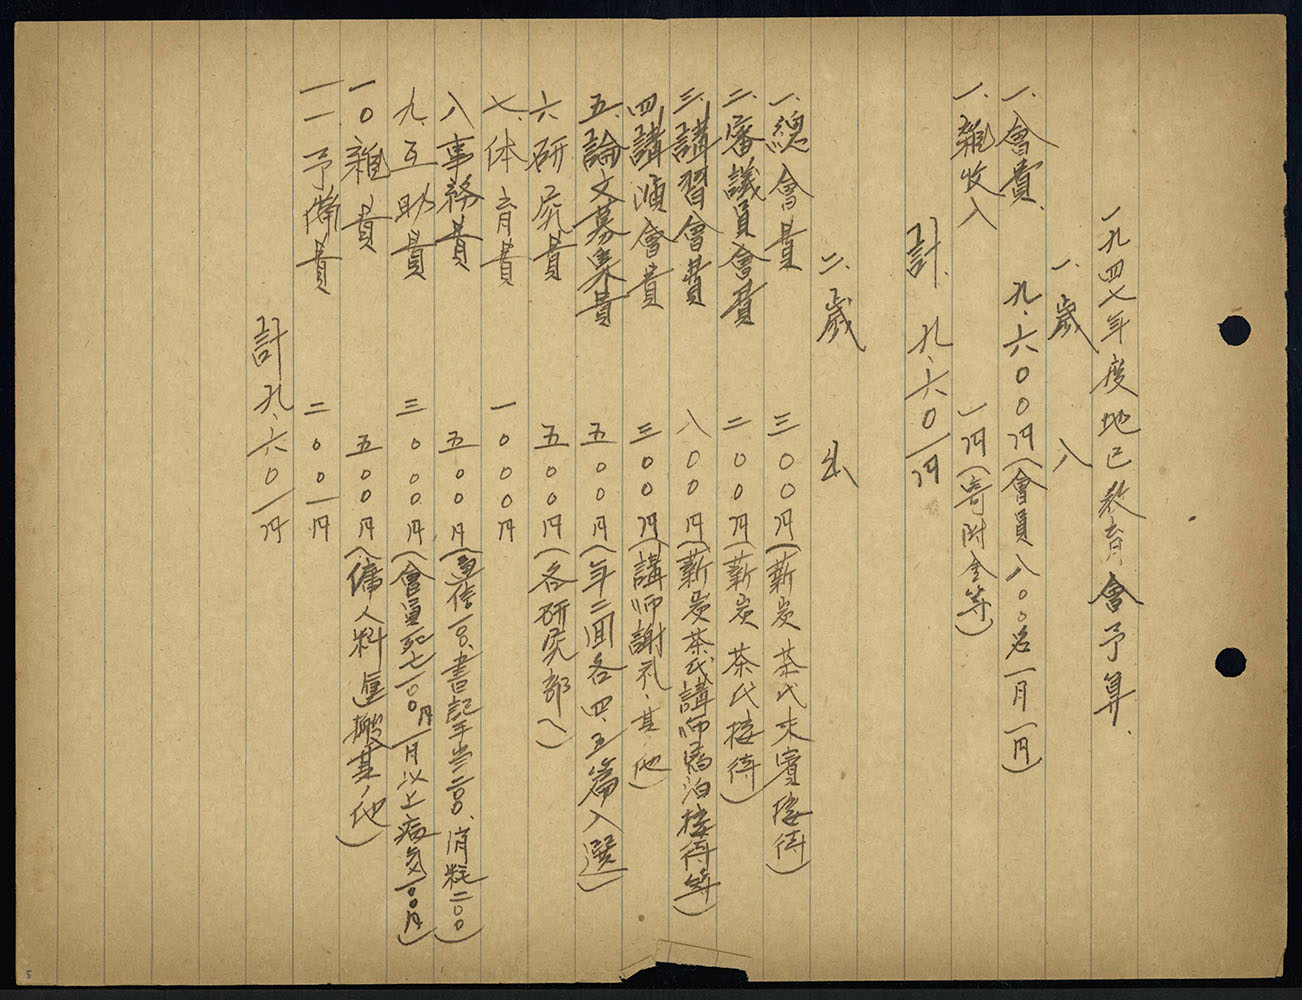 一九四七年度地区教育會予算.
一、歳入
一、會費. 九、六〇〇円(會員八〇〇名一月一円)
一、雑收入 一円(寄附金等)
計. 九、六〇一円
二、歳出
一、總會費 三〇〇円(薪炭茶代来賓接待)
二、審議員會費 二〇〇円(薪炭茶代接待)
三、講習會費 八〇〇円(薪炭茶代講師宿泊接待等)
四、講演會費 三〇〇円(講師謝礼、其他)
五、論文募集費 五〇〇円(年二回各四、五篇入選)
六、研究費 五〇〇円(各研究部へ)
七、体育費 一〇〇〇円
八事務費 五〇〇円(通信一〇〇、書記手当二〇〇、消耗二〇〇)
九、互助費 三〇〇〇円(會員死亡一〇〇円一月以上病気一〇〇円)
一〇雑費 五〇〇円(傭人料運搬其ノ他)
一一予備費 二〇〇一円
計九、六〇一円
5